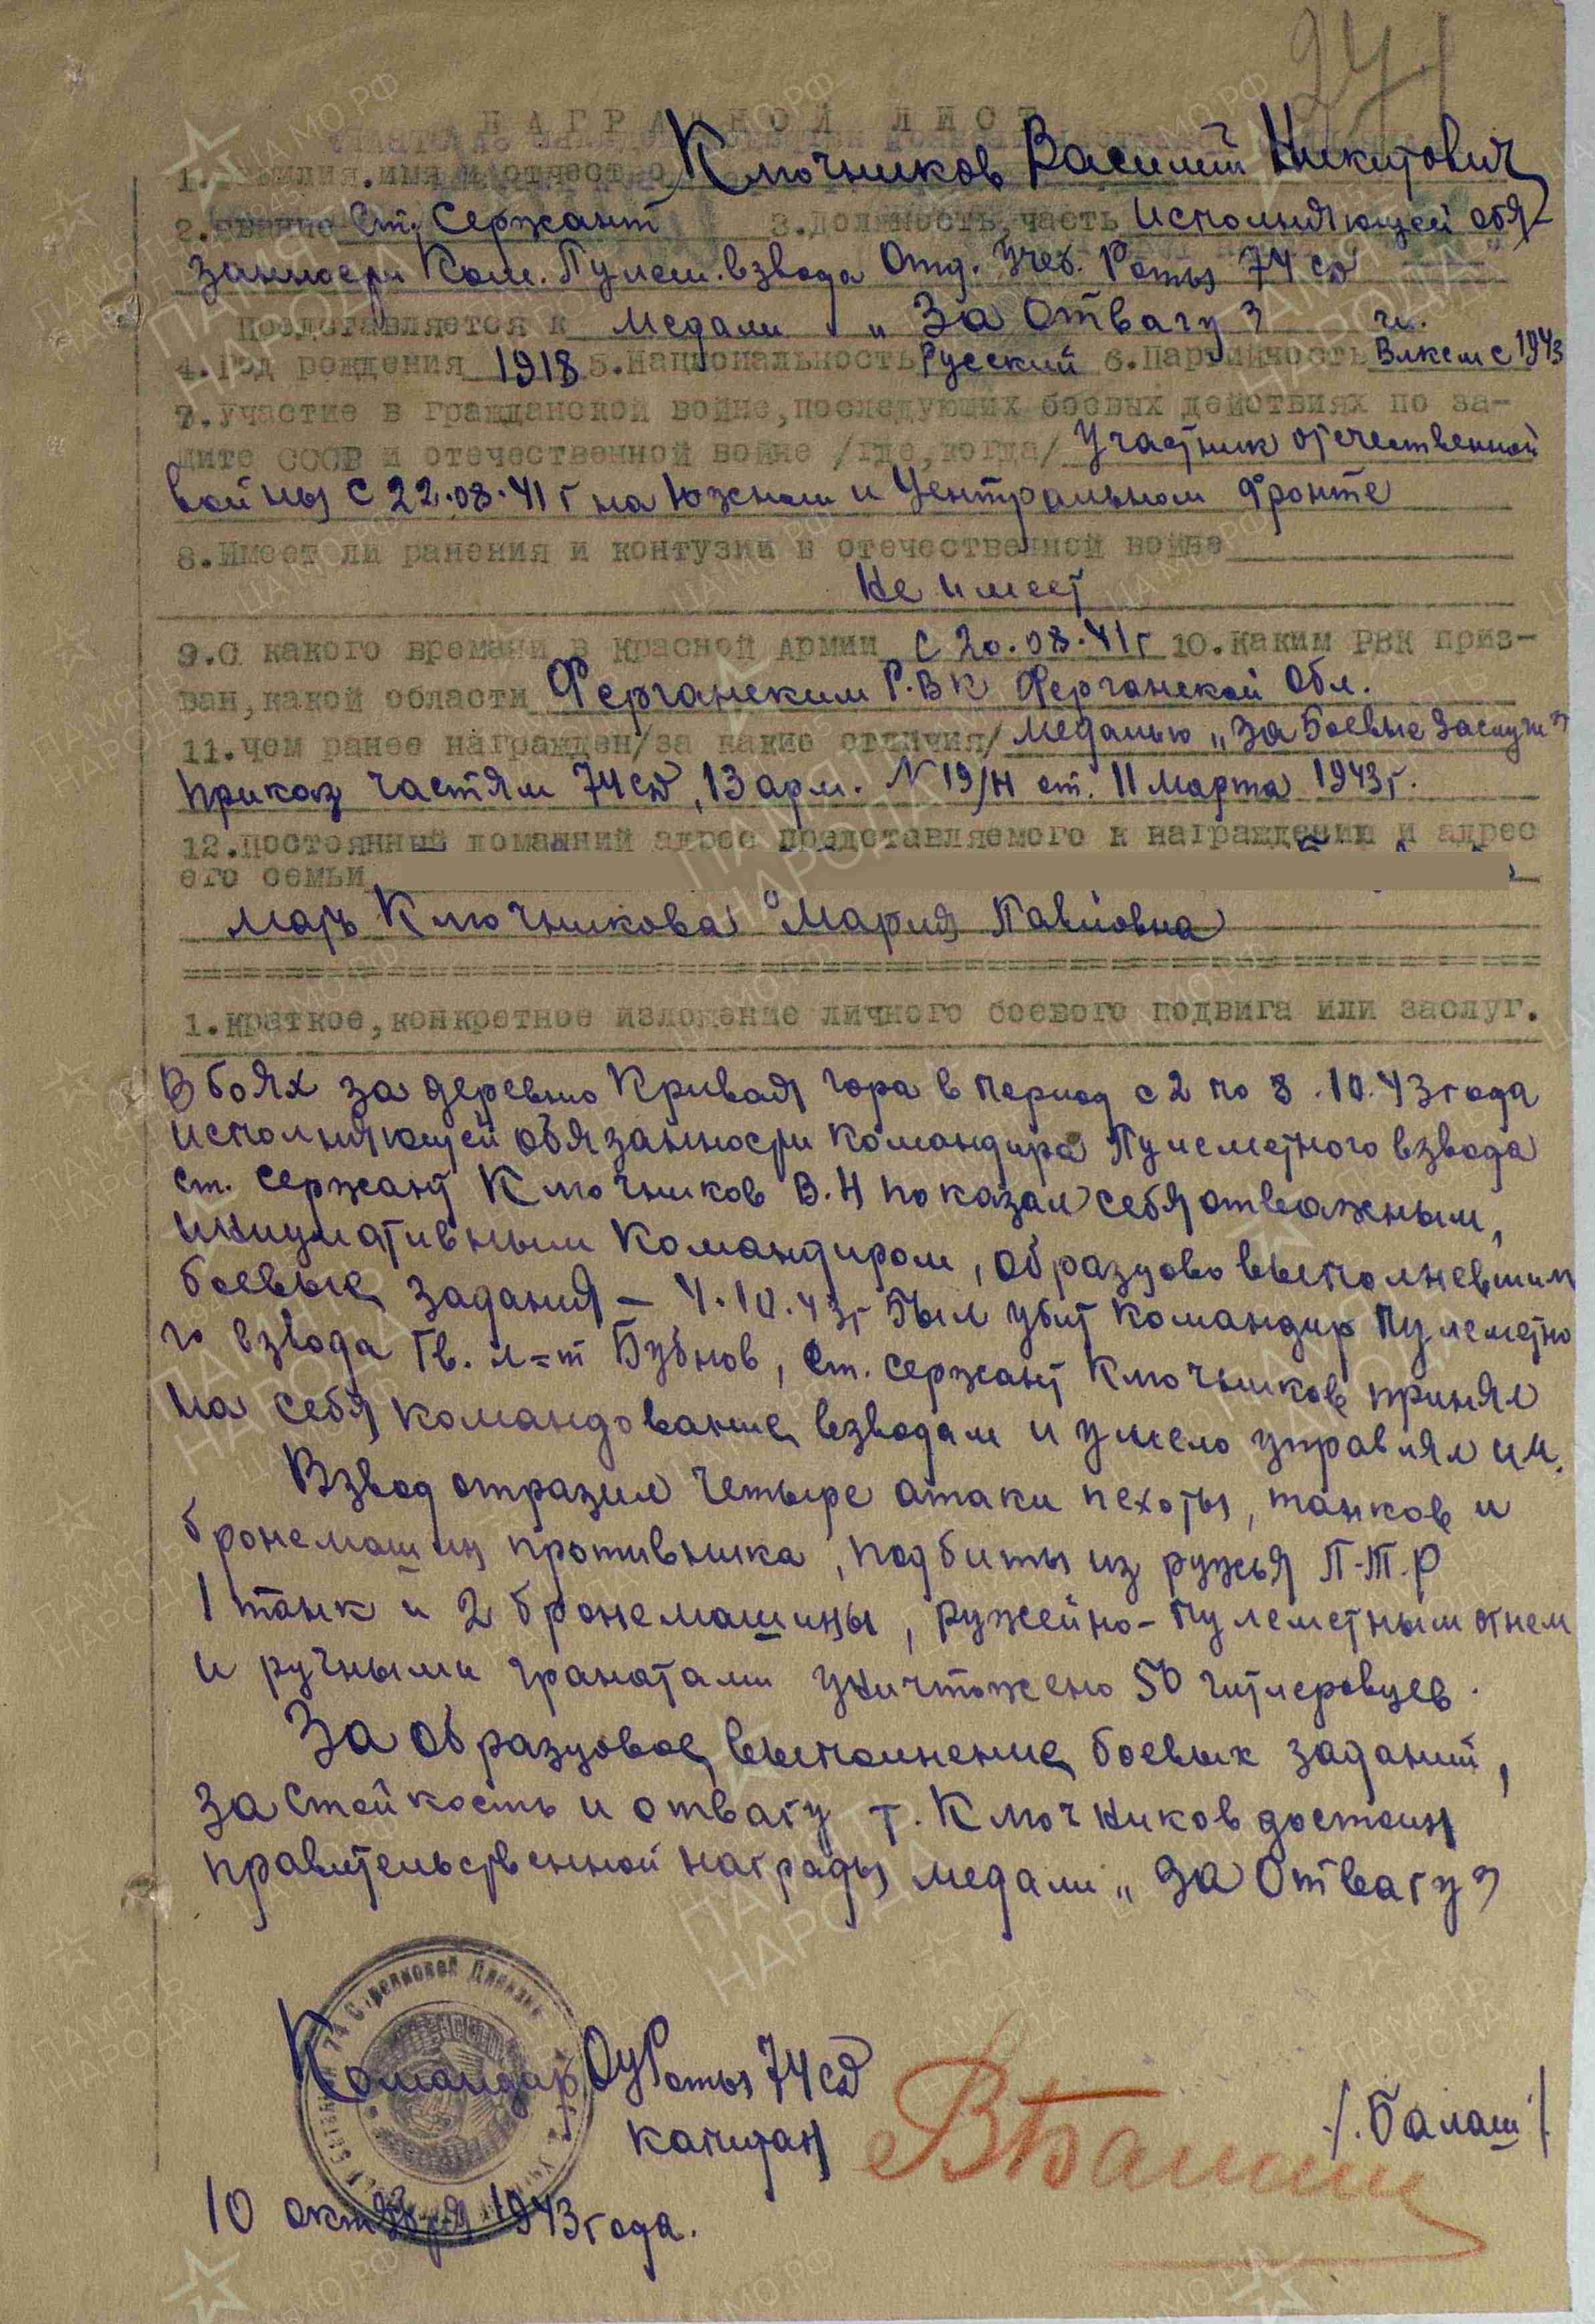 271
НАГРАДНОЙ ЛИСТ
1. Фамилия, имя и отчество Ключников Василий Никитович
2. Звание Ст. Сержант 3. Должность, часть Исполняющей обя-
занности Ком. Пулем. взвода Отд. Учеб. Роты 74 сд
Представляется к медали „За Отвагу"
4. Год рождения 1918 5. Национальность Русский 6. Партийность Влксм с 1943
7. Участие в гражданской войне, последующих боевых действиях по за-
щите СССР и отечественной войне /где, когда/ Участник отечественной
войны с 22.08.41 г на Южном и Центральном Фронте
8. Имеет ли ранения и контузии в отечественной войне
Не имеет
9. С какого времени в Красной Армии с 20.08.41 г 10. Каким РВК приз-
ван, какой области Ферганским Р.В К Ферганской Обл.
11. Чем ранее награжден /за какие отличия/ Медалью „За боевые заслуги"
Приказ частям 74 сд, 13 арм. N 19/н от. 11 марта 1943 г.
12. Постоянный домашний адрес представляемого к награждению и адрес
его семьи
мать Ключникова Мария Павловна
1. Краткое, конкретное изложение личного боевого подвига или заслуг.
В боях за деревню Кривая гора в период с 2 по 8.10.43 года
исполняющей обязанности командира Пулеметного взвода
ст. сержант Ключников В.Н показал себя отважным,
инициативным командиром, образцово выполневшим
боевые задания – 4.10.43 г был убит командир пулеметно
го взвода Гв. л=т Бубнов, ст. сержант Ключников принял
на себя командование взводам и умело управлял им.
Взвод отразил четыре атаки пехоты, танков и
бронемашин противника, подбиты из ружья П.Т.Р
1 танк и 2 бронемашины, ружейно-пулеметным огнем
и ручными гранатами уничтожено 50 гитлеровцев.
За образцовое выполнение боевых заданий,
за стойкость и отвагу т. Ключников достоин
правительственной награды медали „За Отвагу"
Командир ОуРоты 74 сд
капитан /Балаш/
10 октября 1943 года.